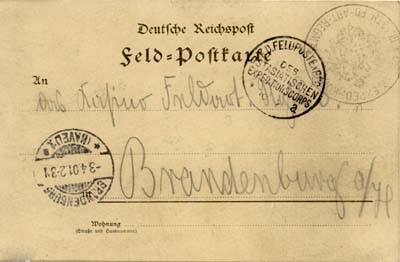 Deutsche Reichspost
Feld=Postkarte
An
das Kasino Feldart.
Brandenburg a/H
Wohnung
(Straße und Hausnummer)
K.D. FELDPOSTEXPED.
DES
OSTASIATISCHEN
EXPEDITIONSCORPS
a
BRANDENBURG
(HAVEL) 1
3.4.01.2-3N